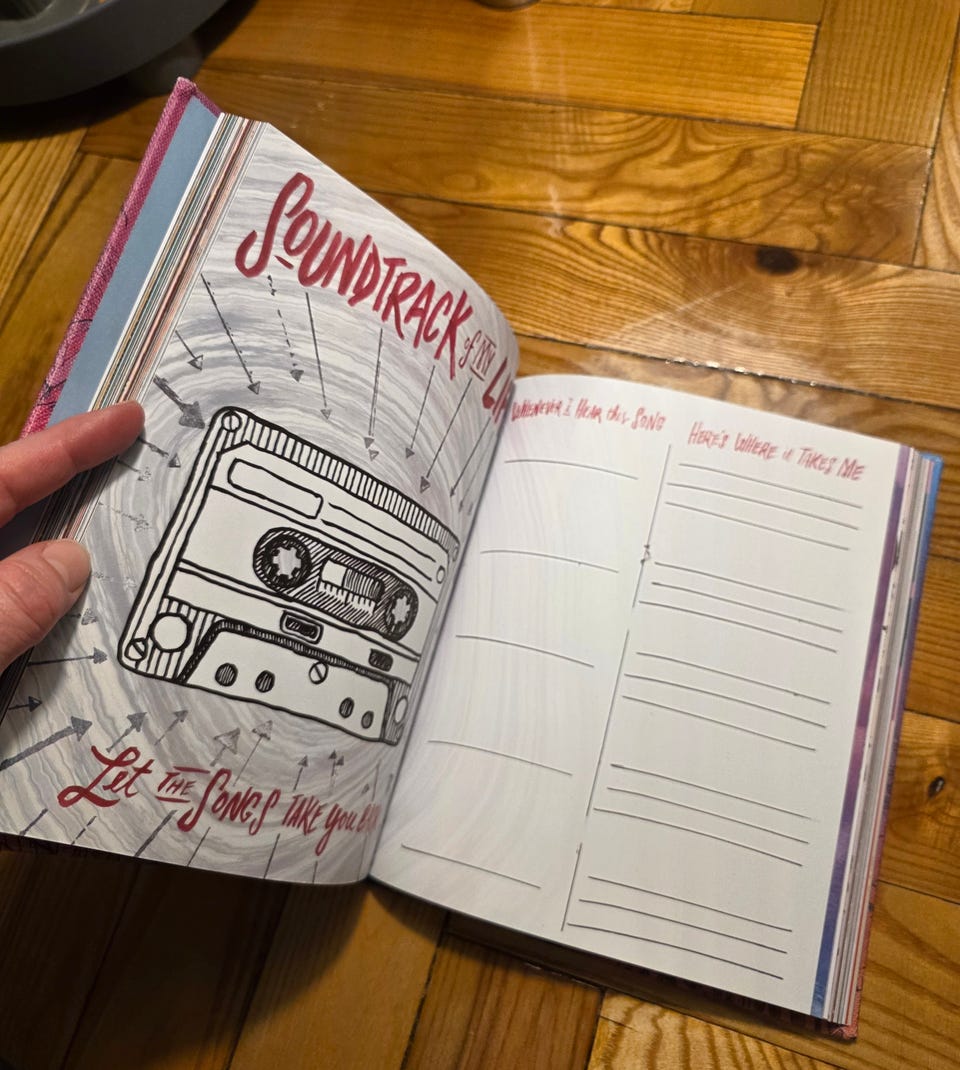 SOUNDTRACK of MY
LET THE SONGS TAKE YOU
WHENEVER I HEAR this SONG
HERE'S WHERE it TAKES ME